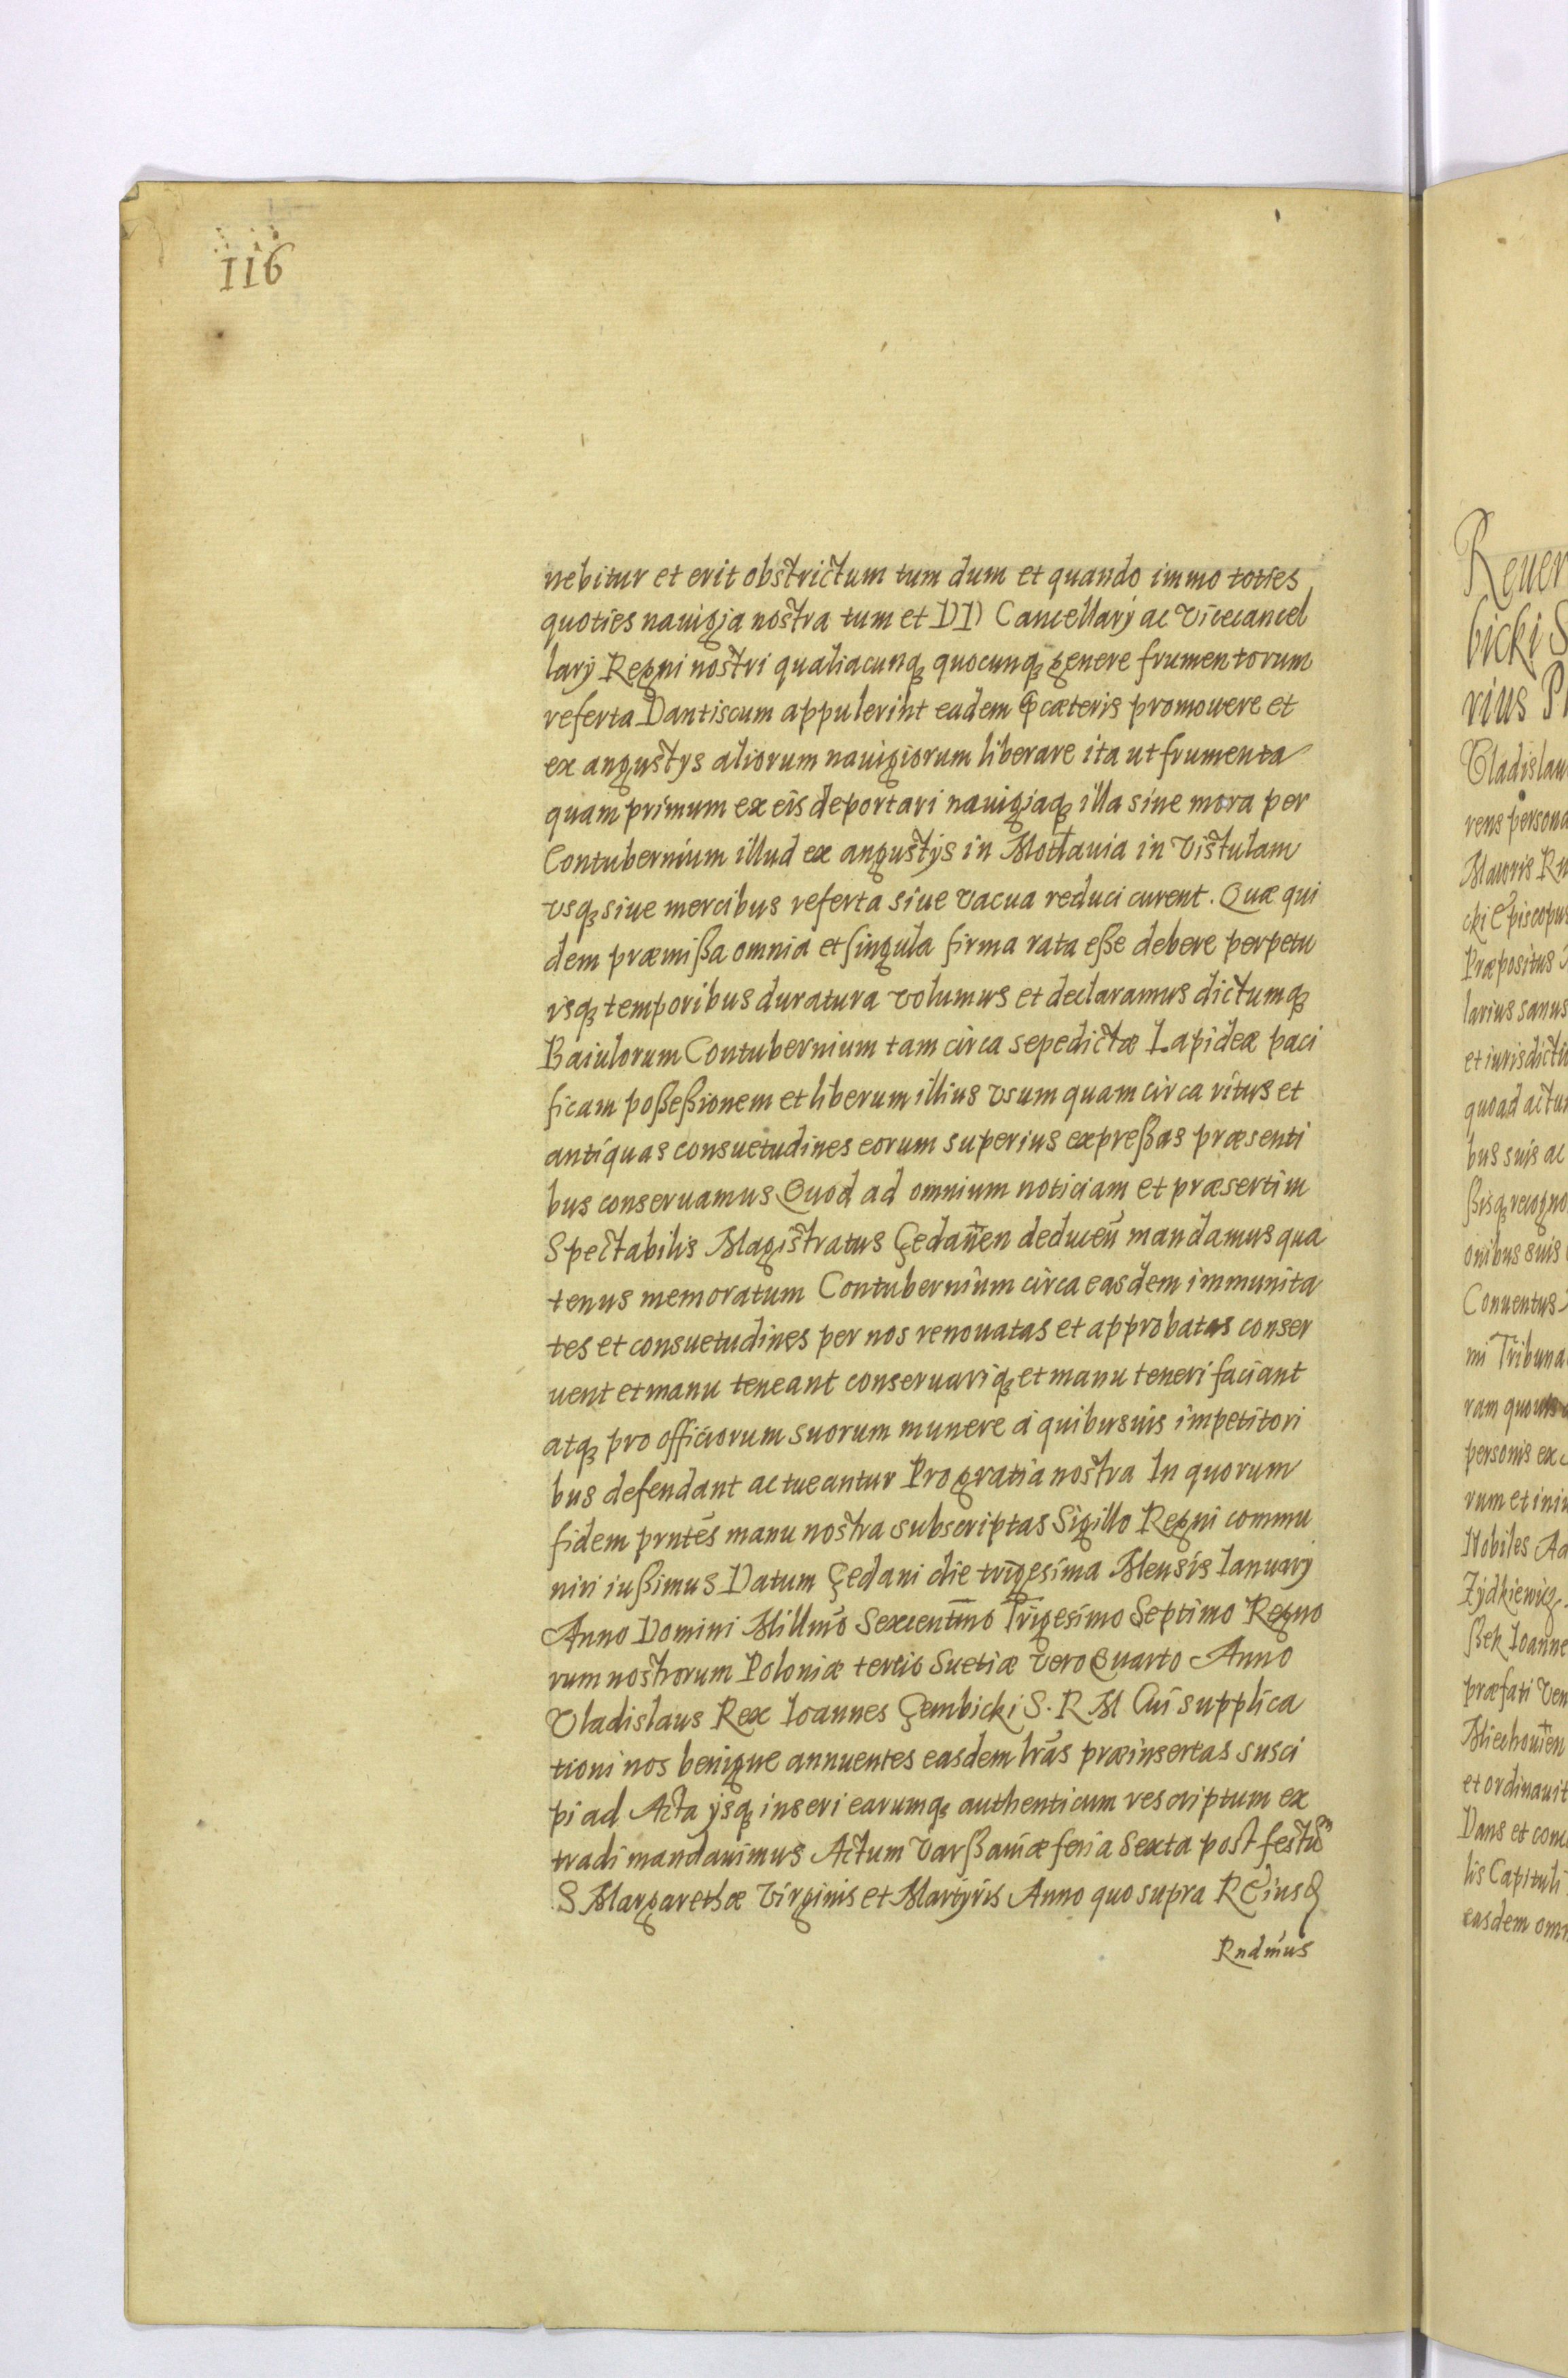 116
nebitur et erit obstrictum tum dum et quando immo toties
quoties nauigia nostra tum et DD Cancellarÿ ac Vicecancel
larÿ Regni nostri qualiacunq quocunq genere frumentorum
referta Dantiscum appulerint eadem cæteris promouere et
ex angustÿs aliorum nauigiorum liberare ita ut frumenta
quam primum ex eis deportari nauigiaq illa sine mora per
Contubernium illud ex angustÿs in Motlauia in Vistulam
vsq siue mercibus referta siue vacua reduci curent. Quæ qui
dem præmißa omnia et singula firma rata eße debere perpetu
isq temporibus duratura volumus et declaramus dictumq
Baiulorum Contubernium tam circa sepedictæ Lapideæ paci
ficam poßeßionem et liberum illius vsum quam circa ritus et
antiquas consuetudines eorum superius expreßas præsenti
bus conseruamus Quod ad omnium noticiam et præsertim
Spectabilis Magistratus Gedanen deducen mandamus qua
tenus memoratum Contubernium circa easdem immunita
tes et consuetudines per nos renouatas et approbatas conser
uent et manu teneant conseruariq et manu teneri faciant
atq pro officiorum suorum munere a quibusuis impetitori
bus defendant ac tueantur Pro gratia nostra In quorum
fidem prntes manu nostra subscriptas Sigillo Regni commu
niri iußimus Datum Gedani die trigesima Mensis Ianuarÿ
Anno Domini Millmo Sexcentmo Trigesimo Septimo Regno
rum nostrorum Poloniæ tertio Suetiæ vero Quarto Anno
Vladislaus Rex Ioannes Gembicki S. R M Cui supplica
tioni nos benigne annuentes easdem lras præinsertas susci
pi ad Acta ÿsq inseri earumq authenticum rescriptum ex
tradi mandauimus Actum Varßauiæ feria Sexta post festum
S Margarethæ Virginis et Martyris Anno quo supra R Eiusd
Rndmus
Reuer
bicki S
rius Pr
Vladislau
rens persona
Maioris Rn
cki Episcopus
Præpositus
larius sanus
et iurisdictio
quoad actu
bus suis ac
ßisq recogno
onibus suis
Conuentus
mi Tribuna
ram quouis
personis ex
rum et iniu
Nobiles Ad
Zydkiewicz
ßek Ioanne
præfati Ven
Miechouien
et ordinauit
Dans et conc
lis Capituli
easdem omn